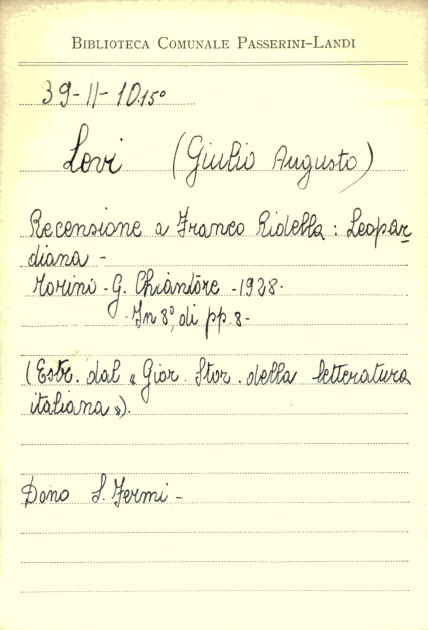 BIBLIOTECA COMUNALE PASSERINI-LANDI
39-II-10.15°
Lovi (Giulio Augusto)
Recensione a Franco Ridella: Leopar
diana -
Torino - G. Chiantore - 1928 -
- In 8°, di pp. 8 -
(Estr. dal « Gior. Stor. della letteratura
italiana »).
Dono S. Fermi -